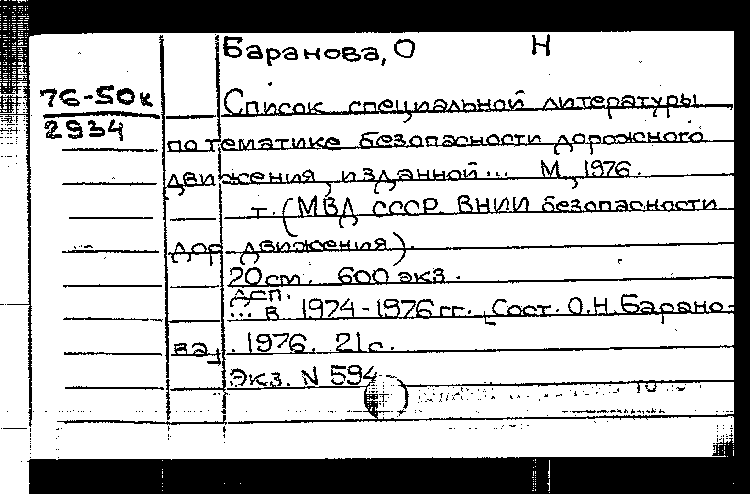 Баранова, О Н
76-50к
2934
Список специальной литературы
по тематике безопасности дорожного
движения, изданной... М., 1976.
т. (МВД СССР. ВНИИ безопасности
дор. движения).
20 см. 600 экз.
дсп.
... в 1974-1976 гг. [Сост. О.Н. Барано-
ва]. 1976. 21 с.
Экз. N 594